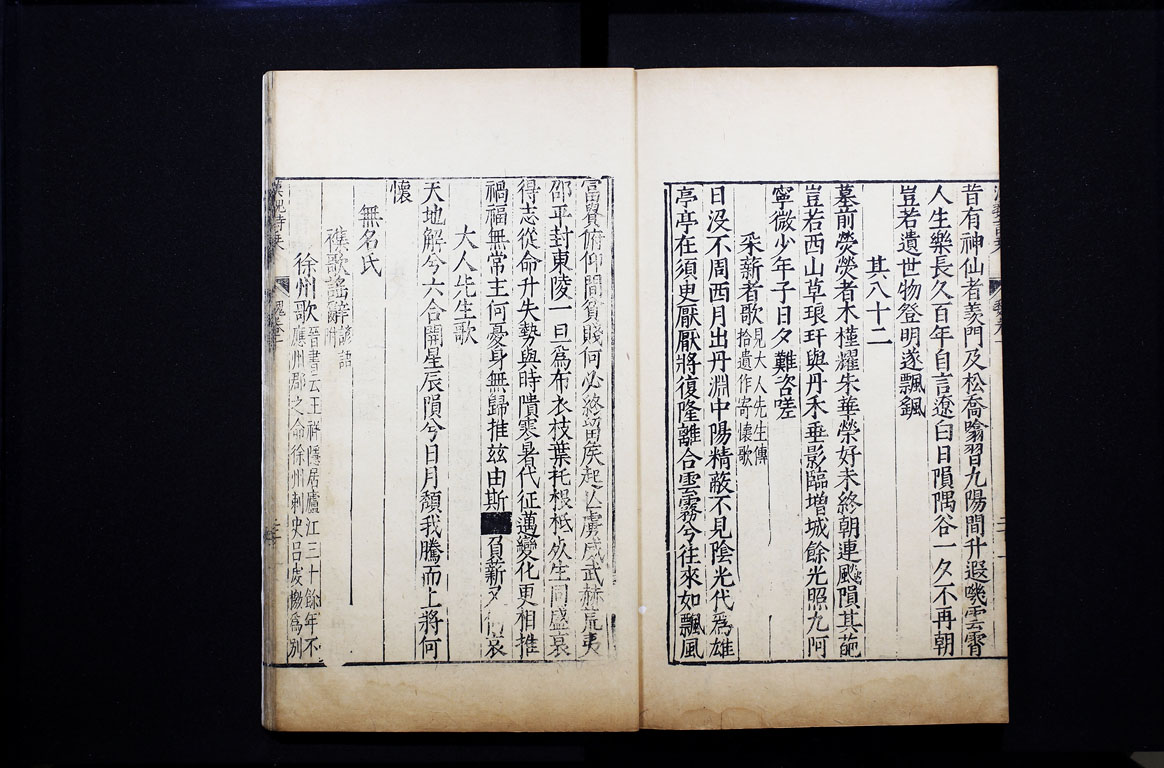 昔有神仙者羨門及松喬噏習九陽間升遐嘰雲霄
人生樂長久百年自言遼白日隕隅谷一夕不再朝
豈若遺世物登明遂飄颻
其八十二
墓前熒熒者木槿耀朱華榮好未終朝連飈隕其葩
豈若西山草琅玕與丹禾垂影臨增城餘光照九阿
寧微少年子日夕難咨嗟
采薪者歌
見大人先生傳
拾遺作寄懷歌
日没不周西月出丹淵中陽精蔽不見陰光代爲雄
亭亭在須臾厭厭將復隆離合雲霧兮往來如飄風
富貴俯仰間貧賤何必終留侯起亡虜威武赫荒夷
邵平封東陵一旦爲布衣枝葉托根柢死生同盛衰
得志從命升失勢與時隤寒暑代征邁變化更相推
禍福無常主何憂身無歸推玆由斯負薪又何哀
大人先生歌
天地解兮六合開星辰隕兮日月頽我騰而上將何
懷
無名氏
襍歌謡辭
諺語
附
徐州歌
晉書云王祥隱居廬江三十餘年不
應州郡之命徐州刺史呂虔檄爲别
漢魏詩乘
魏卷